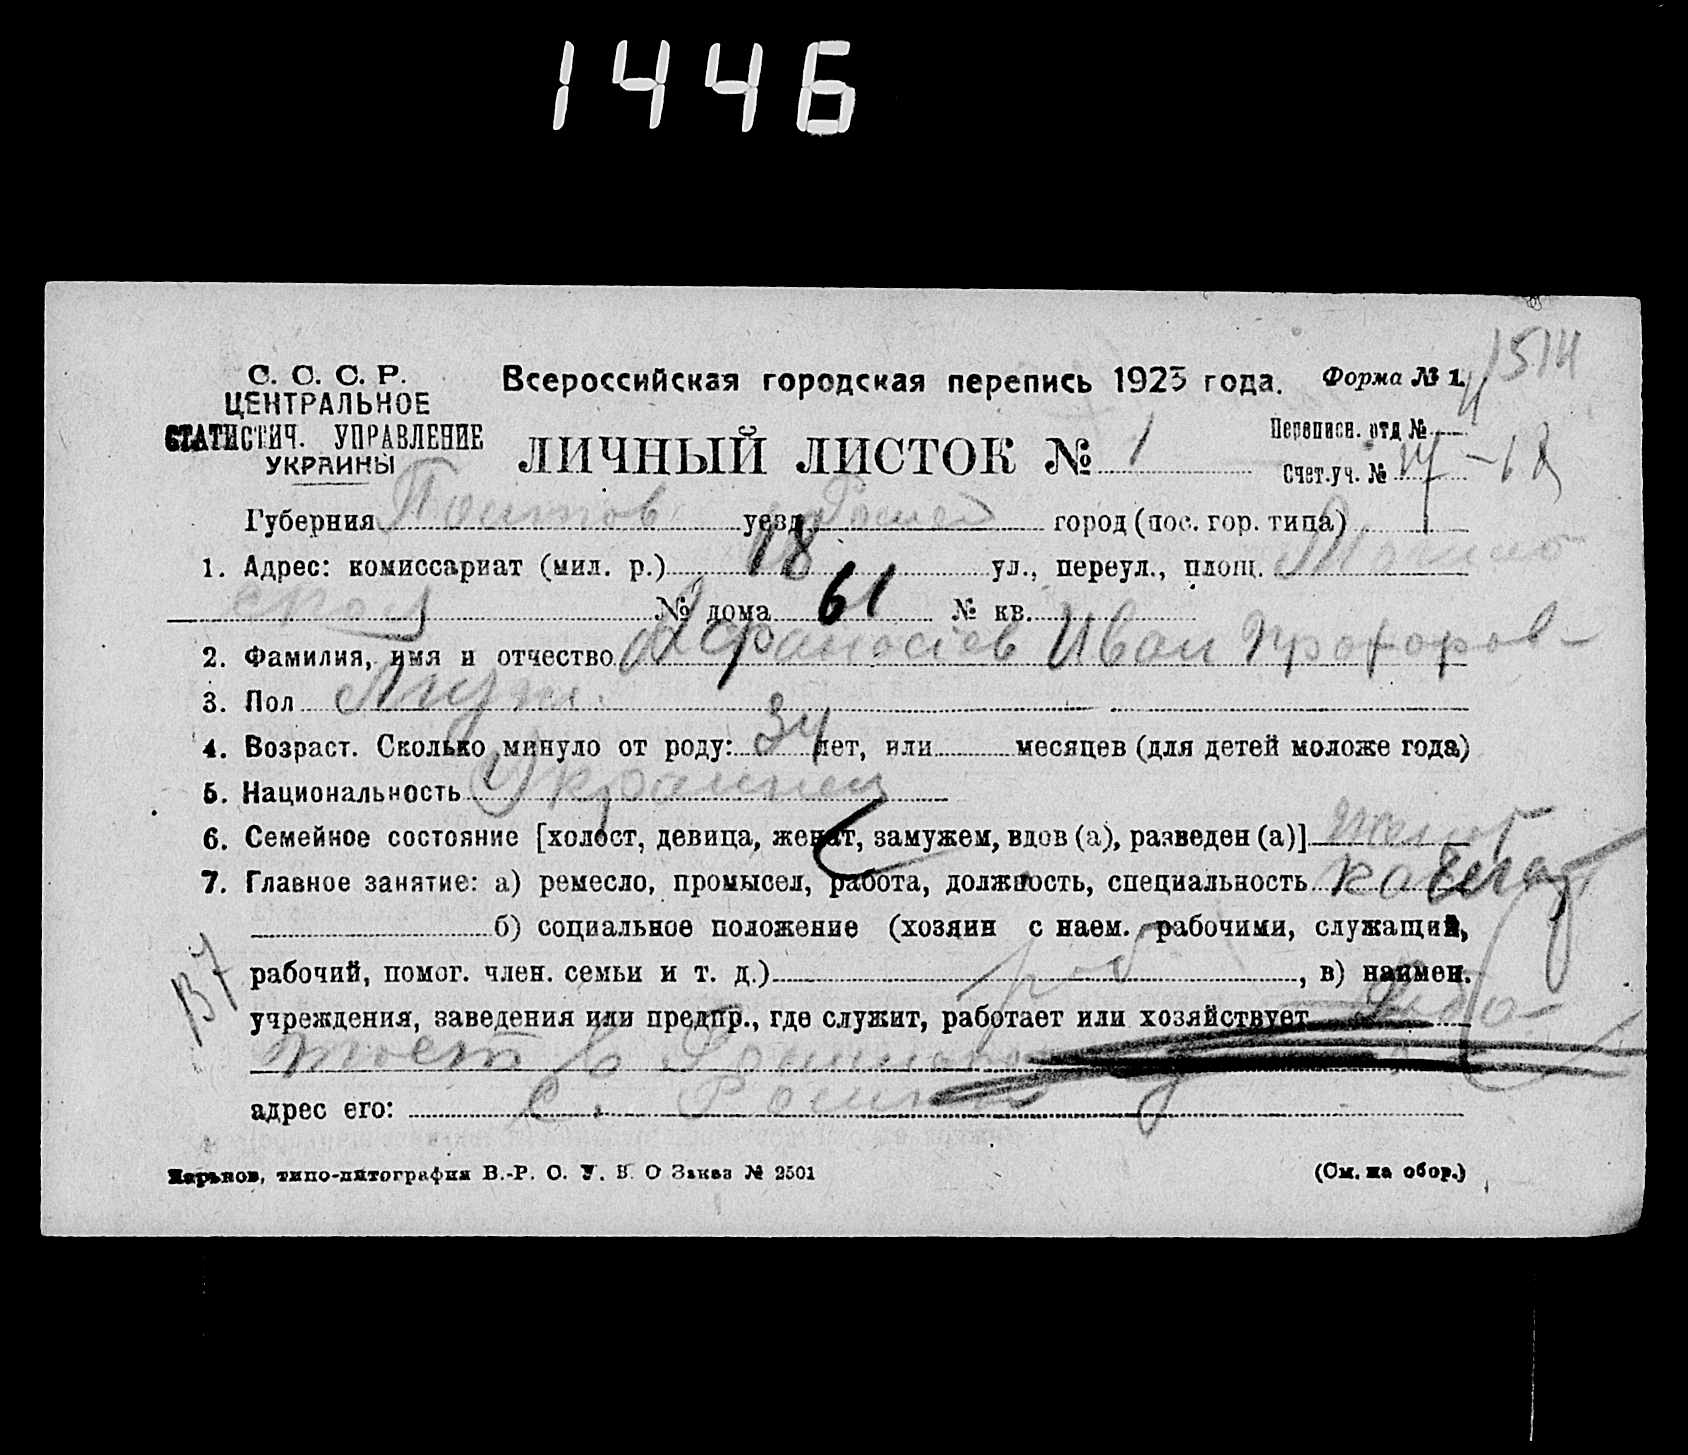 1446
С. С. С. Р.
ЦЕНТРАЛЬНОЕ
СТАТИСТИЧ. УПРАВЛЕНИЕ
УКРАИНЫ
Всероссийская городская перепись 1923 года.
Форма № 1.
1514
ЛИЧНЫЙ ЛИСТОК № 1
Переписн. отд №
Счет.уч. № 17 - 18
Губерния уезд город (пос. гор. типа)
1. Адрес: комиссариат (мил. р.) 18 ул., переул., площ.
№ дома 61 № кв.
2. Фамилия, имя и отчество Афанасіев Иван Прохоров-
3. Пол Муж.
4. Возраст. Сколько минуло от роду: 34 лет, или месяцев (для детей моложе года)
5. Национальность Украинец
6. Семейное состояние [холост, девица, женат, замужем, вдов (а), разведен (а)] женат
7. Главное занятие: а) ремесло, промысел, работа, должность, специальность кочегар
б) социальное положение (хозяин с наем. рабочими, служащий,
рабочий, помог. член. семьи и т. д.) раб , в) наимен.
учреждения, заведения или предпр., где служит, работает или хозяйствует Рабо-
тает в
адрес его: с.
В7
Харьков, типо-литография В.-Р. О. У. В. О Заказ № 2501
(См. на обор.)